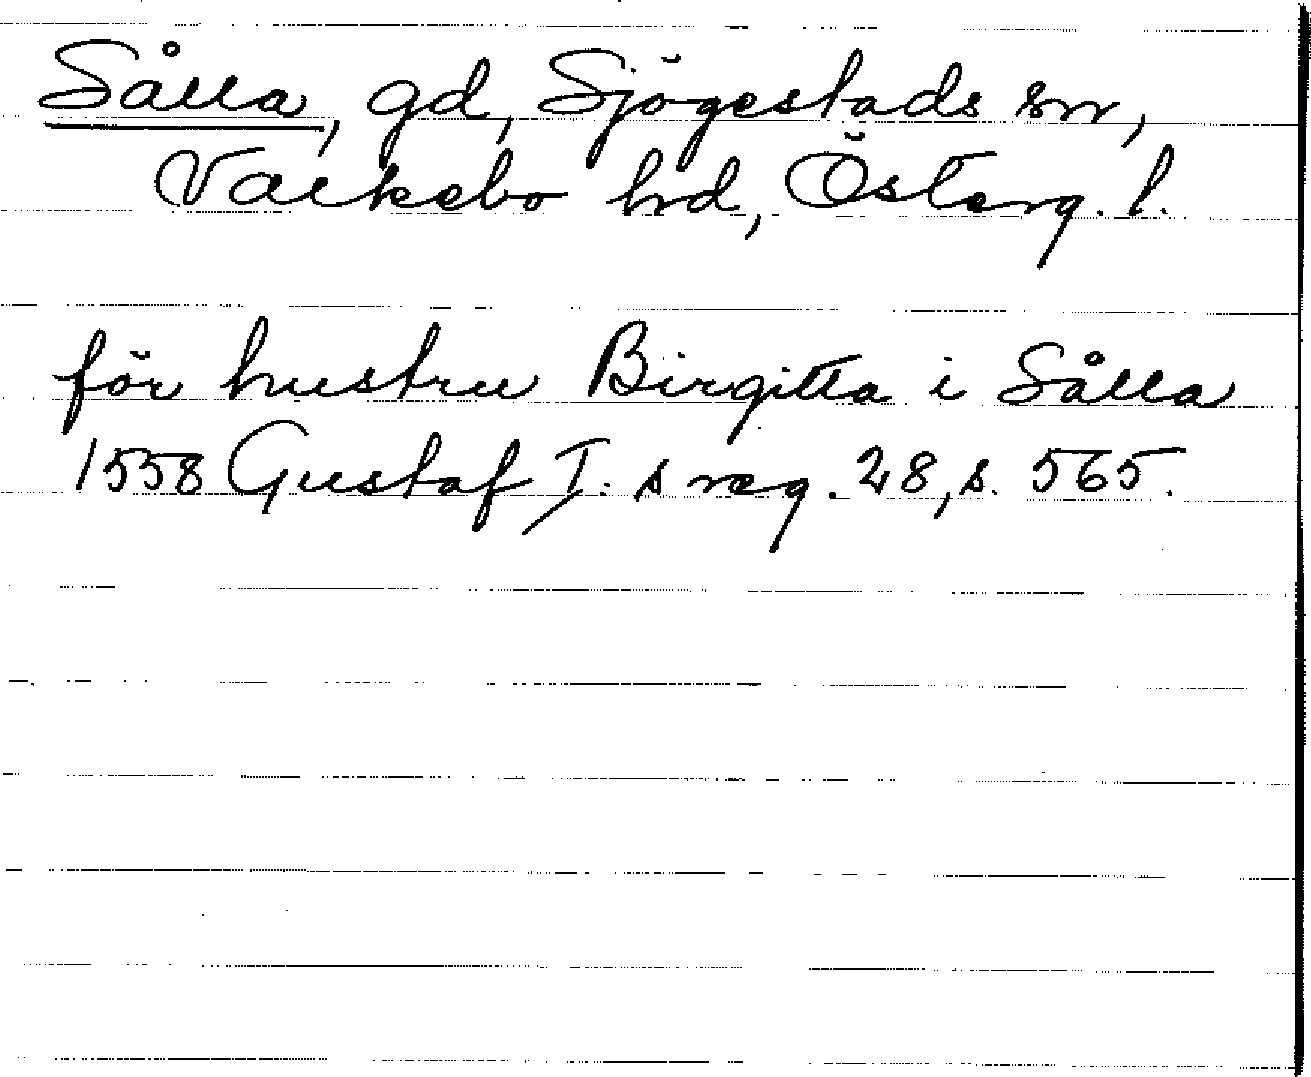 Sålla, gd, Sjögestads sn,
Valkebo hd, Österg. l.
för hustru Birgitta i Sålla
1558 Gustaf I:s reg. 28, s. 565.